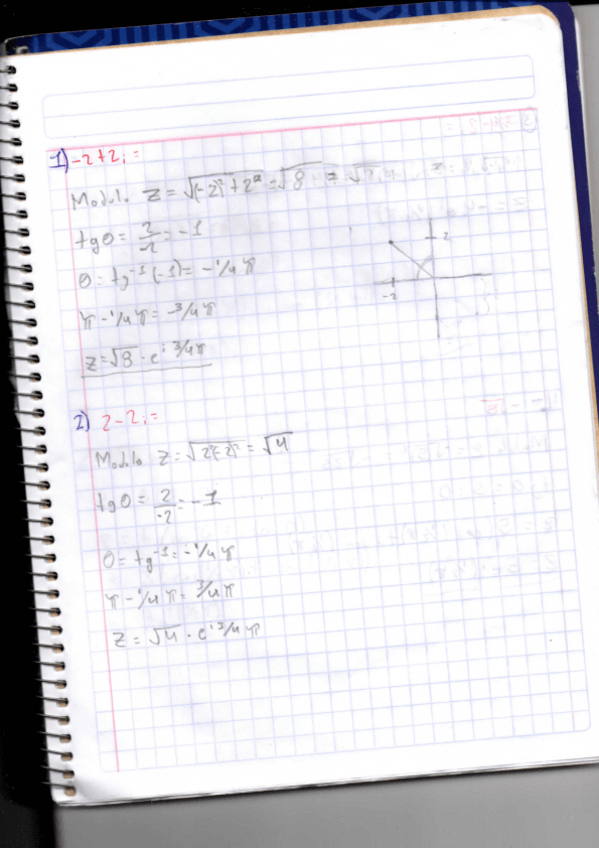 1) -2+2i=
Modulo z = √(-2)²+2² = √8
tgθ = 2/-2 = -1
θ = tg⁻¹(-1) = -1/4 π
π - 1/4 π = 3/4 π
z = √8 · e^i 3/4 π
2
-2
2) 2-2i=
Modulo z = √2²(-2)² = √4
tgθ = 2/-2 = -1
θ = tg⁻¹ = -1/4 π
π - 1/4 π = 3/4 π
z = √4 · e^i 3/4 π